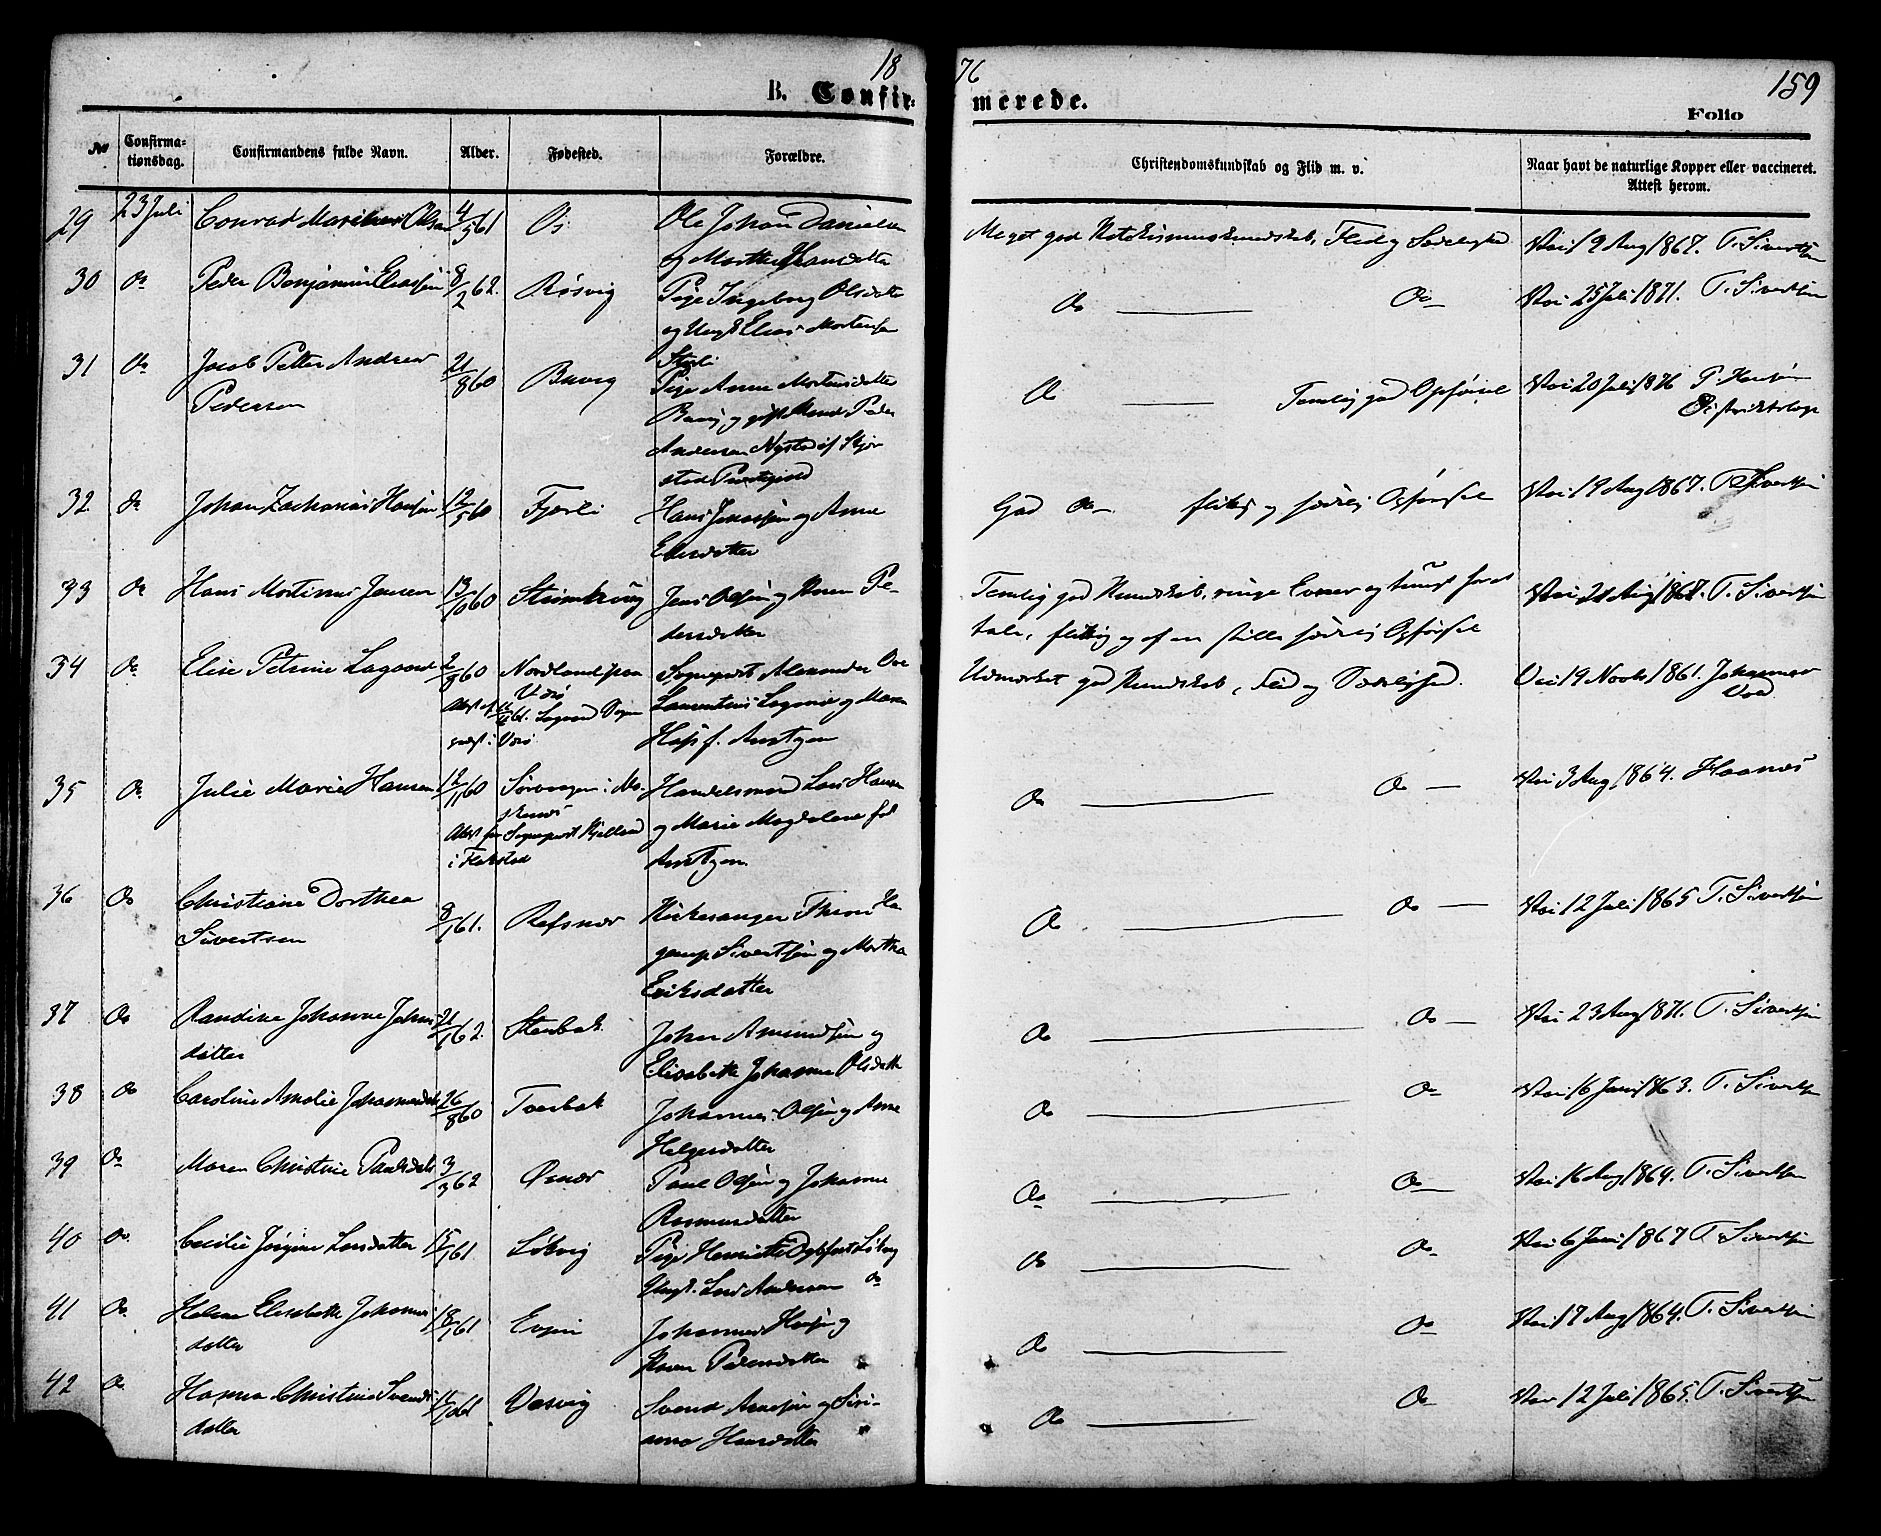 18
76
159
B. Confir-
merede.
Folio
No
Confirma-
tionsdag.
Confirmandens fulde Navn.
Alder.
Fødested.
Forældre.
Christendomskundskab og Flid m. v.
Naar havt de naturlige Kopper eller vaccineret.
Attest herom.
29 23 Juli Conrad Olsen 4/5 61 Os Ole Johan Danielsen
og Marthe Hansdatter
Meget god Katekismuskundskab, Flid og Sædelighed Vac 19 Aug 1867. T. Sivertsen
30 Do Peder Benjamin Eliassen 8/2 62. Røsvig Pige Ingeborg Olsdatter
og Ungk Elias Mortensen
Do Do Vac 25 Juli 1871. T. Sivertsen
31 Do Jacob Petter Andreas
Pedersen
21/8 60 Buvig
Pige Anne Mortensdatter
Buvig og gift Mand Peder
Andersen Nystad af Skjer
stad Prestegjeld
Do Temlig god Opførsel Vac 20 Juli 1876 P. Hansen
Distriktslæge
32 Do Johan Zacharias Hansen 12/5 60 Fjærli Hans Jonassen og Anne
Eliasdatter
God Do flittig og sædelig Opførsel Vac 19 Aug 1867. T. Sivertsen
33 Do Hans Martinus Jensen 13/10 60 Jens Olsen og Karen Pe-
dersdatter
Temlig god Kundskab, ringe Evner og tungt for at
tale, flittig og af en stille sædelig Opførsel
Vac 21 Aug 1867. T. Sivertsen
34 Do Elise Petrine Lagaard 2/8 60 Sognepræst Alexander Ove
Laurentius Lagaard og Maren
Hass f. Arntzen
Værø
Udmærket god Kundskab, Flid og Sædelighed. Vac 19 Novb 1861. Johannes
35 Do Julie Marie Hansen 12/11 60 Sørvaagen i Mo-
skenes
Attest fra Sognepræst Kjelland
i Flakstad
Handelsmand Lars Hansen
og Marie Magdalene fød
Arntzen.
Do Do Vac 3 Aug 1864. Haanæs
36 Do Christiane Dorthea
Sivertsen
8/1 61. Røfsnes Kirkesanger Thron Ha
gerup Sivertsen og Martha
Eriksdatter
Do Do Vac 12 Juli 1865 T. Sivertsen
37 Do Randine Johanne Johns
datter
21/1 62. Stenbak John Amundsen og
Elisabeth Johanna Olsdatter
Do Do Vac 23 Aug 1871. T. Sivertsen
38 Do Caroline Amalie Johannesdatter 26/8 60 Tverbak Johannes Olsen og Anne
Helgesdatter
Do Do Vac 16 Juni 1863. T. Sivertsen
39 Do Maren Christine Paulsdatter 3/3 62 Øsnes Paul Olsen og Johanna
Rasmusdatter
Do Do Vac 16 Aug 1864. T. Sivertsen
40 Do Cecilie Jørgine Larsdatter 15/1 61 Løkvig Pige Henriette Løkvig
Ungk. Lars Andersen Do
Do Do Vac 6 Juni 1867 T. Sivertsen
41 Do Helene Elisabeth Johannes
datter
18/1 61 Evjen Johannes Hansen og
Karen Pedersdatter
Do Do Vac 17 Aug 1864. T. Sivertsen
42 Do Hanna Christine Svends
datter
15/10 61 Vasvig Svend Arnesen og Siri-
anna Hansdatter
Do Do Vac 12 Juli 1865. T. Sivertsen